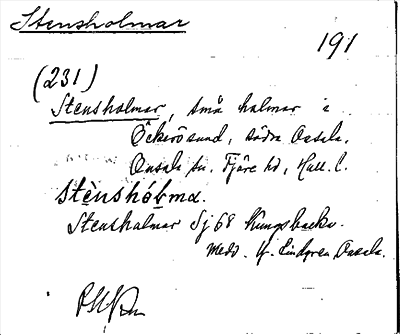 Stensholmar
191
(231)
Stensholmar, små holmar i
Öckerösund, södra Onsala,
Onsala sn. Fjäre hd, Hall. l.
Stènshól̥ma.
Stensholmar Sj 68 Kungsbacka.
Medd. Hj. Lindgren Onsala.